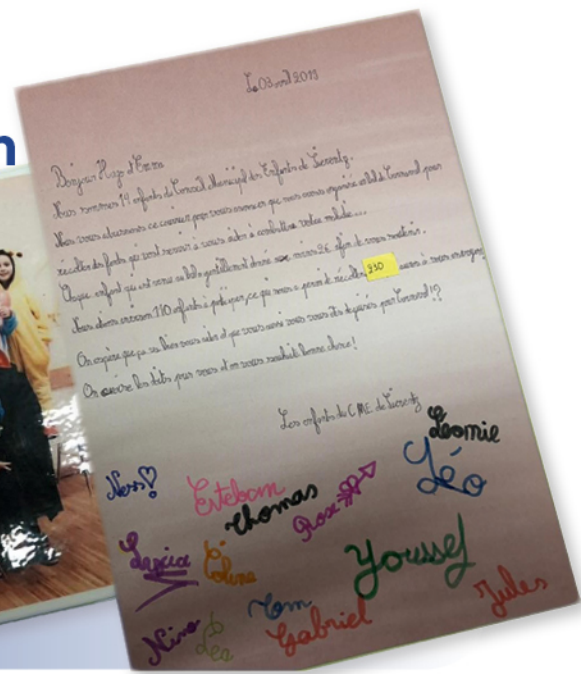 n
Le 03 avril 2019
Bonjour Hugo et Emma
Nous sommes 19 enfants du Conseil Municipal des Enfants de Sierentz.
Nous vous adressons ce courrier pour vous annoncer que nous avons organisé un bal de Carnaval pour
récolter des fonds qui vont servir à vous aider à combattre votre maladie...
Chaque enfant qui est venu au bal a gentillement donné au moins 2€ afin de vous soutenir.
Nous étions environ 110 enfants à participer, ce qui nous a permis de récolter 230 euros à vous envoyer
On espère que ça va bien vous aider et que vous aussi vous vous êtes déguisés pour Carnaval !?
On croise les doigts pour vous et on vous souhaite bonne chance !
Les enfants du CME de Sierentz
Leomie
Ness
Esteban
Thomas
Rose
Léo
Lascia
Coline
Youssef
Jules
Nina
Léa
Tom
Gabriel